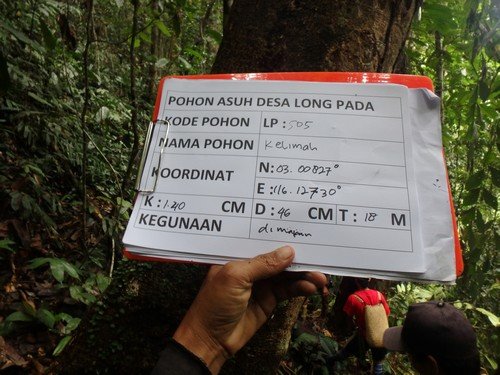 POHON ASUH DESA LONG PADA
KODE POHON LP : 505
NAMA POHON Kelimah
KOORDINAT N: 03. 00827°
E : 116. 12730°
K : 140 CM D : 46 CM T : 18 M
KEGUNAAN